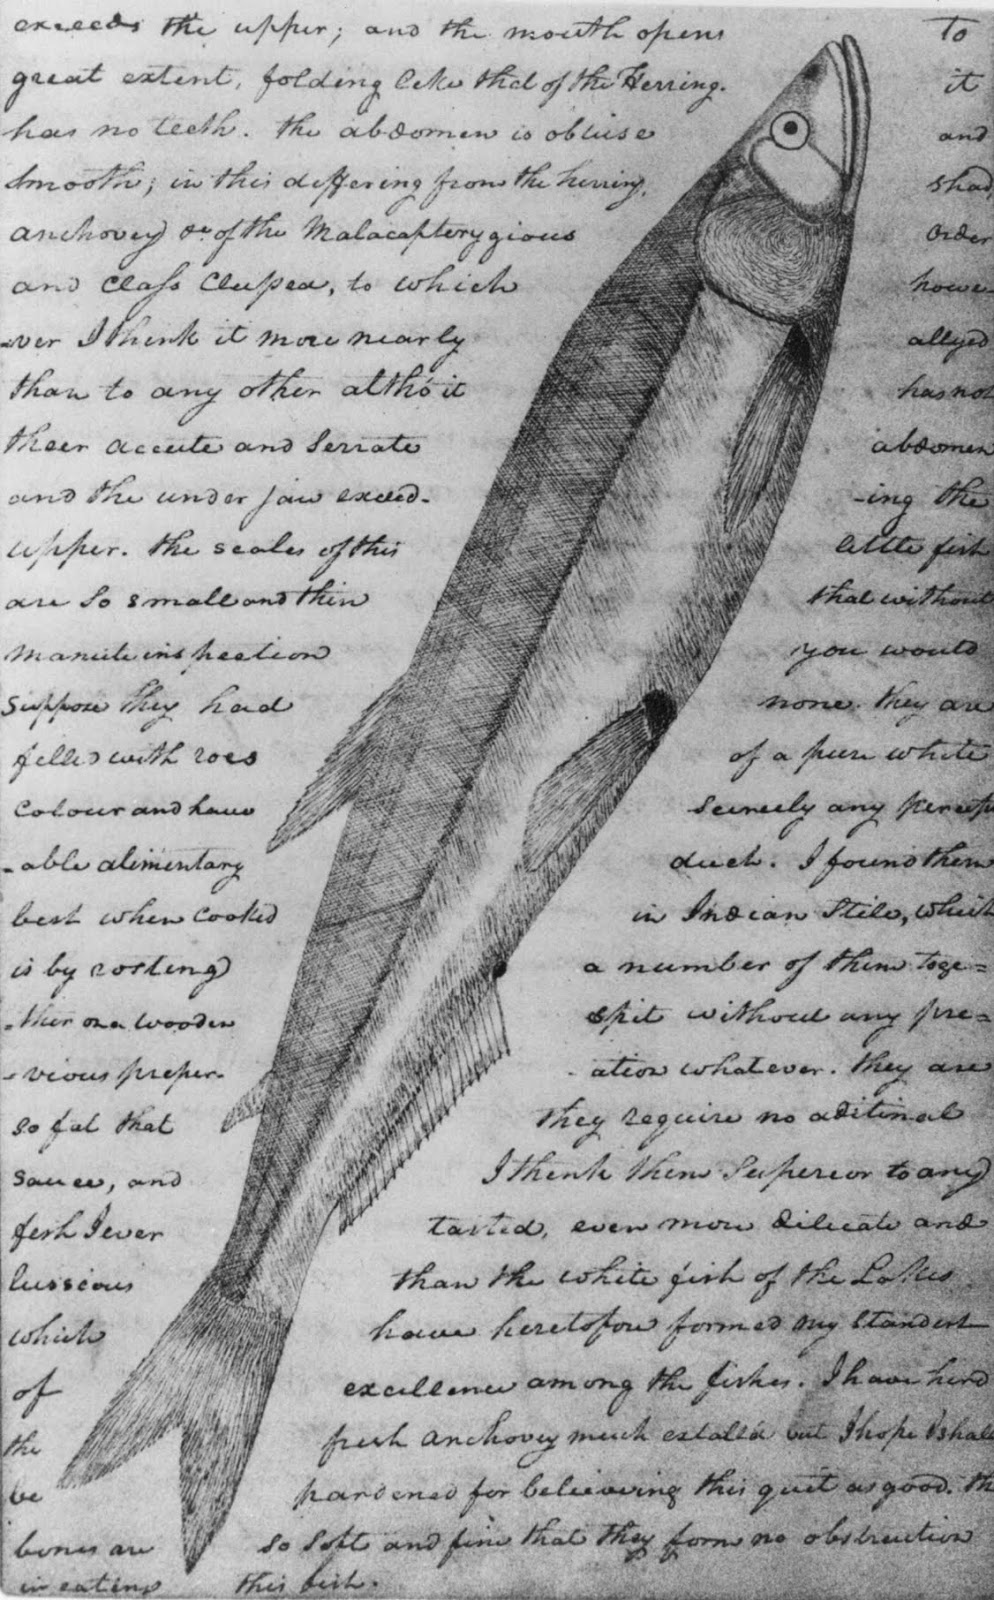 exceeds the upper; and the mouth opens To
great extent, folding like that of the Herring. it
has no teeth. the abdomen is obtuse and
smooth; in this differing from the herring, shad,
anchovey &c of the Malacapterygious Order
and Class Clupea, to which howe-
-ver I think it more nearly allyed
than to any other altho' it has not
their accute and serrate abdomen
and the under jaw exceed- -ing the
upper. the scales of this little fish
are so small and thin that without
manute inspection you would
suppose they had none. they are
filled with roes of a pure white
colour and have scercely any percept
-able alimentary duct. I found them
best when cooked in Indian stile, which
is by rosting a number of them toge=
=ther on a wooden spit without any pre=
-vious preper- -ation whatever. they are
so fat that they require no aditinal
sauce, and I think them superior to any
fish I ever tasted, even more dilicate and
lussious than the white fish of the Lakes
which have heretofore formed my standert
of excellence among the fishes. I have herd
the fresh anchovey much extalld but I hope I shall
be pardoned for believeing this quit as good. the
bones are so soft and fine that they form no obstruction
in eating this fish.